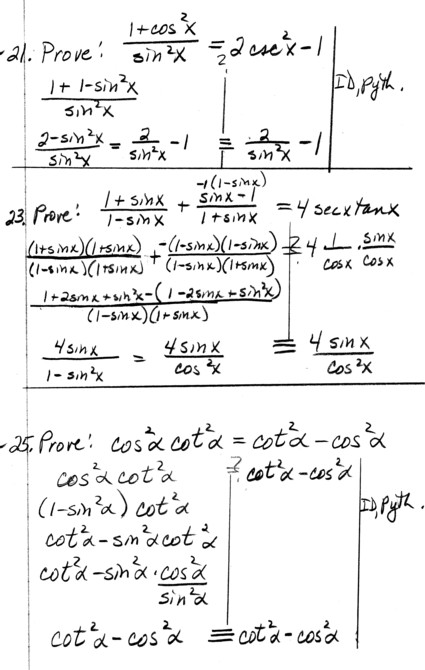 ~21. Prove: (1+cos²x)/(sin²x) =? 2csc²x-1
(1+1-sin²x)/(sin²x) | ID, Pyth.
(2-sin²x)/(sin²x) = 2/(sin²x) -1 ≡ 2/(sin²x) -1
-1(1-sinx)
23. Prove: (1+sinx)/(1-sinx) + (sinx-1)/(1+sinx) = 4secxtanx
(1+sinx)(1+sinx)/(1-sinx)(1+sinx) + -(1-sinx)(1-sinx)/(1-sinx)(1+sinx) =? 4 1/cosx · sinx/cosx
1+2sinx+sin²x-(1-2sinx+sin²x)/(1-sinx)(1+sinx)
4sinx/(1-sin²x) = 4sinx/cos²x ≡ 4sinx/cos²x
~25. Prove: cos²α cot²α = cot²α-cos²α
cos²α cot²α =? cot²α-cos²α
(1-sin²α) cot²α | ID, Pyth.
cot²α-sin²α cot²α
cot²α-sin²α · cos²α/sin²α
cot²α-cos²α ≡ cot²α-cos²α